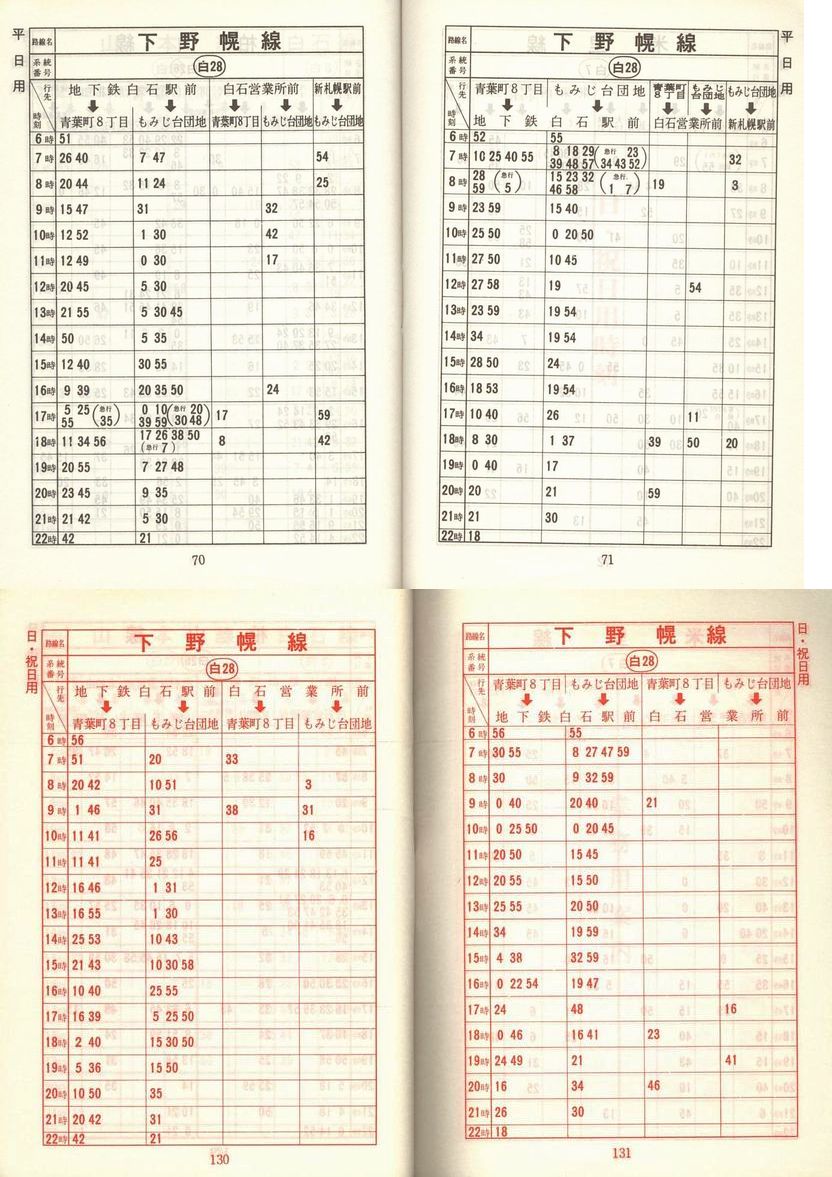 平日用
路線名 下野幌線
系統番号 白28
行先 地下鉄白石駅前 白石営業所前 新札幌駅前
時刻 青葉町8丁目 もみじ台団地 青葉町8丁目 もみじ台団地 もみじ台団地
6時 51
7時 26 40 7 47 54
8時 20 44 11 24 25
9時 15 47 31 32
10時 12 52 1 30 42
11時 12 49 0 30 17
12時 20 45 5 30
13時 21 55 5 30 45
14時 50 5 35
15時 12 40 30 55
16時 9 39 20 35 50 24
17時 5 25 55 (急行 35) 0 10 39 59 (急行 20 30 48) 17 59
18時 11 34 56 17 26 38 50 (急行 7) 8 42
19時 20 55 7 27 48
20時 23 45 9 35
21時 21 42 5 30
22時 42 21
70
平日用
路線名 下野幌線
系統番号 白28
行先 青葉町8丁目 もみじ台団地 青葉町8丁目 もみじ台団地 もみじ台団地
時刻 地下鉄白石駅前 白石営業所前 新札幌駅前
6時 52 55
7時 10 25 40 55 8 18 29 39 48 57 (急行 23 34 43 52) 32
8時 28 59 (急行 5) 15 23 32 46 58 (急行 1 7) 19 3
9時 23 59 15 40
10時 25 50 0 20 50
11時 27 50 10 45
12時 27 58 19 54
13時 23 59 19 54
14時 34 19 54
15時 28 50 24
16時 18 53 19 54
17時 10 40 26 11
18時 8 30 1 37 39 50 20
19時 0 40 17
20時 20 21 59
21時 21 30
22時 18
71
日・祝日用
路線名 下野幌線
系統番号 白28
行先 地下鉄白石駅前 白石営業所前
時刻 青葉町8丁目 もみじ台団地 青葉町8丁目 もみじ台団地
6時 56
7時 51 20 33
8時 20 42 10 51 3
9時 1 46 31 38 31
10時 11 41 26 56 16
11時 11 41 25
12時 16 46 1 31
13時 16 55 1 30
14時 25 53 10 43
15時 21 43 10 30 58
16時 10 40 25 55
17時 16 39 5 25 50
18時 2 40 15 30 50
19時 5 36 15 50
20時 10 50 35
21時 20 42 31
22時 42 21
130
日・祝日用
路線名 下野幌線
系統番号 白28
行先 青葉町8丁目 もみじ台団地 青葉町8丁目 もみじ台団地
時刻 地下鉄白石駅前 白石営業所前
6時 56 55
7時 30 55 8 27 47 59
8時 30 9 32 59
9時 0 40 20 40 21
10時 0 25 50 0 20 45
11時 20 50 15 45
12時 20 55 15 50
13時 25 55 20 50
14時 34 19 59
15時 4 38 32 59
16時 0 22 54 19 47
17時 24 48 16
18時 0 46 16 41 23
19時 24 49 21 41
20時 16 34 46
21時 26 30
22時 18
131